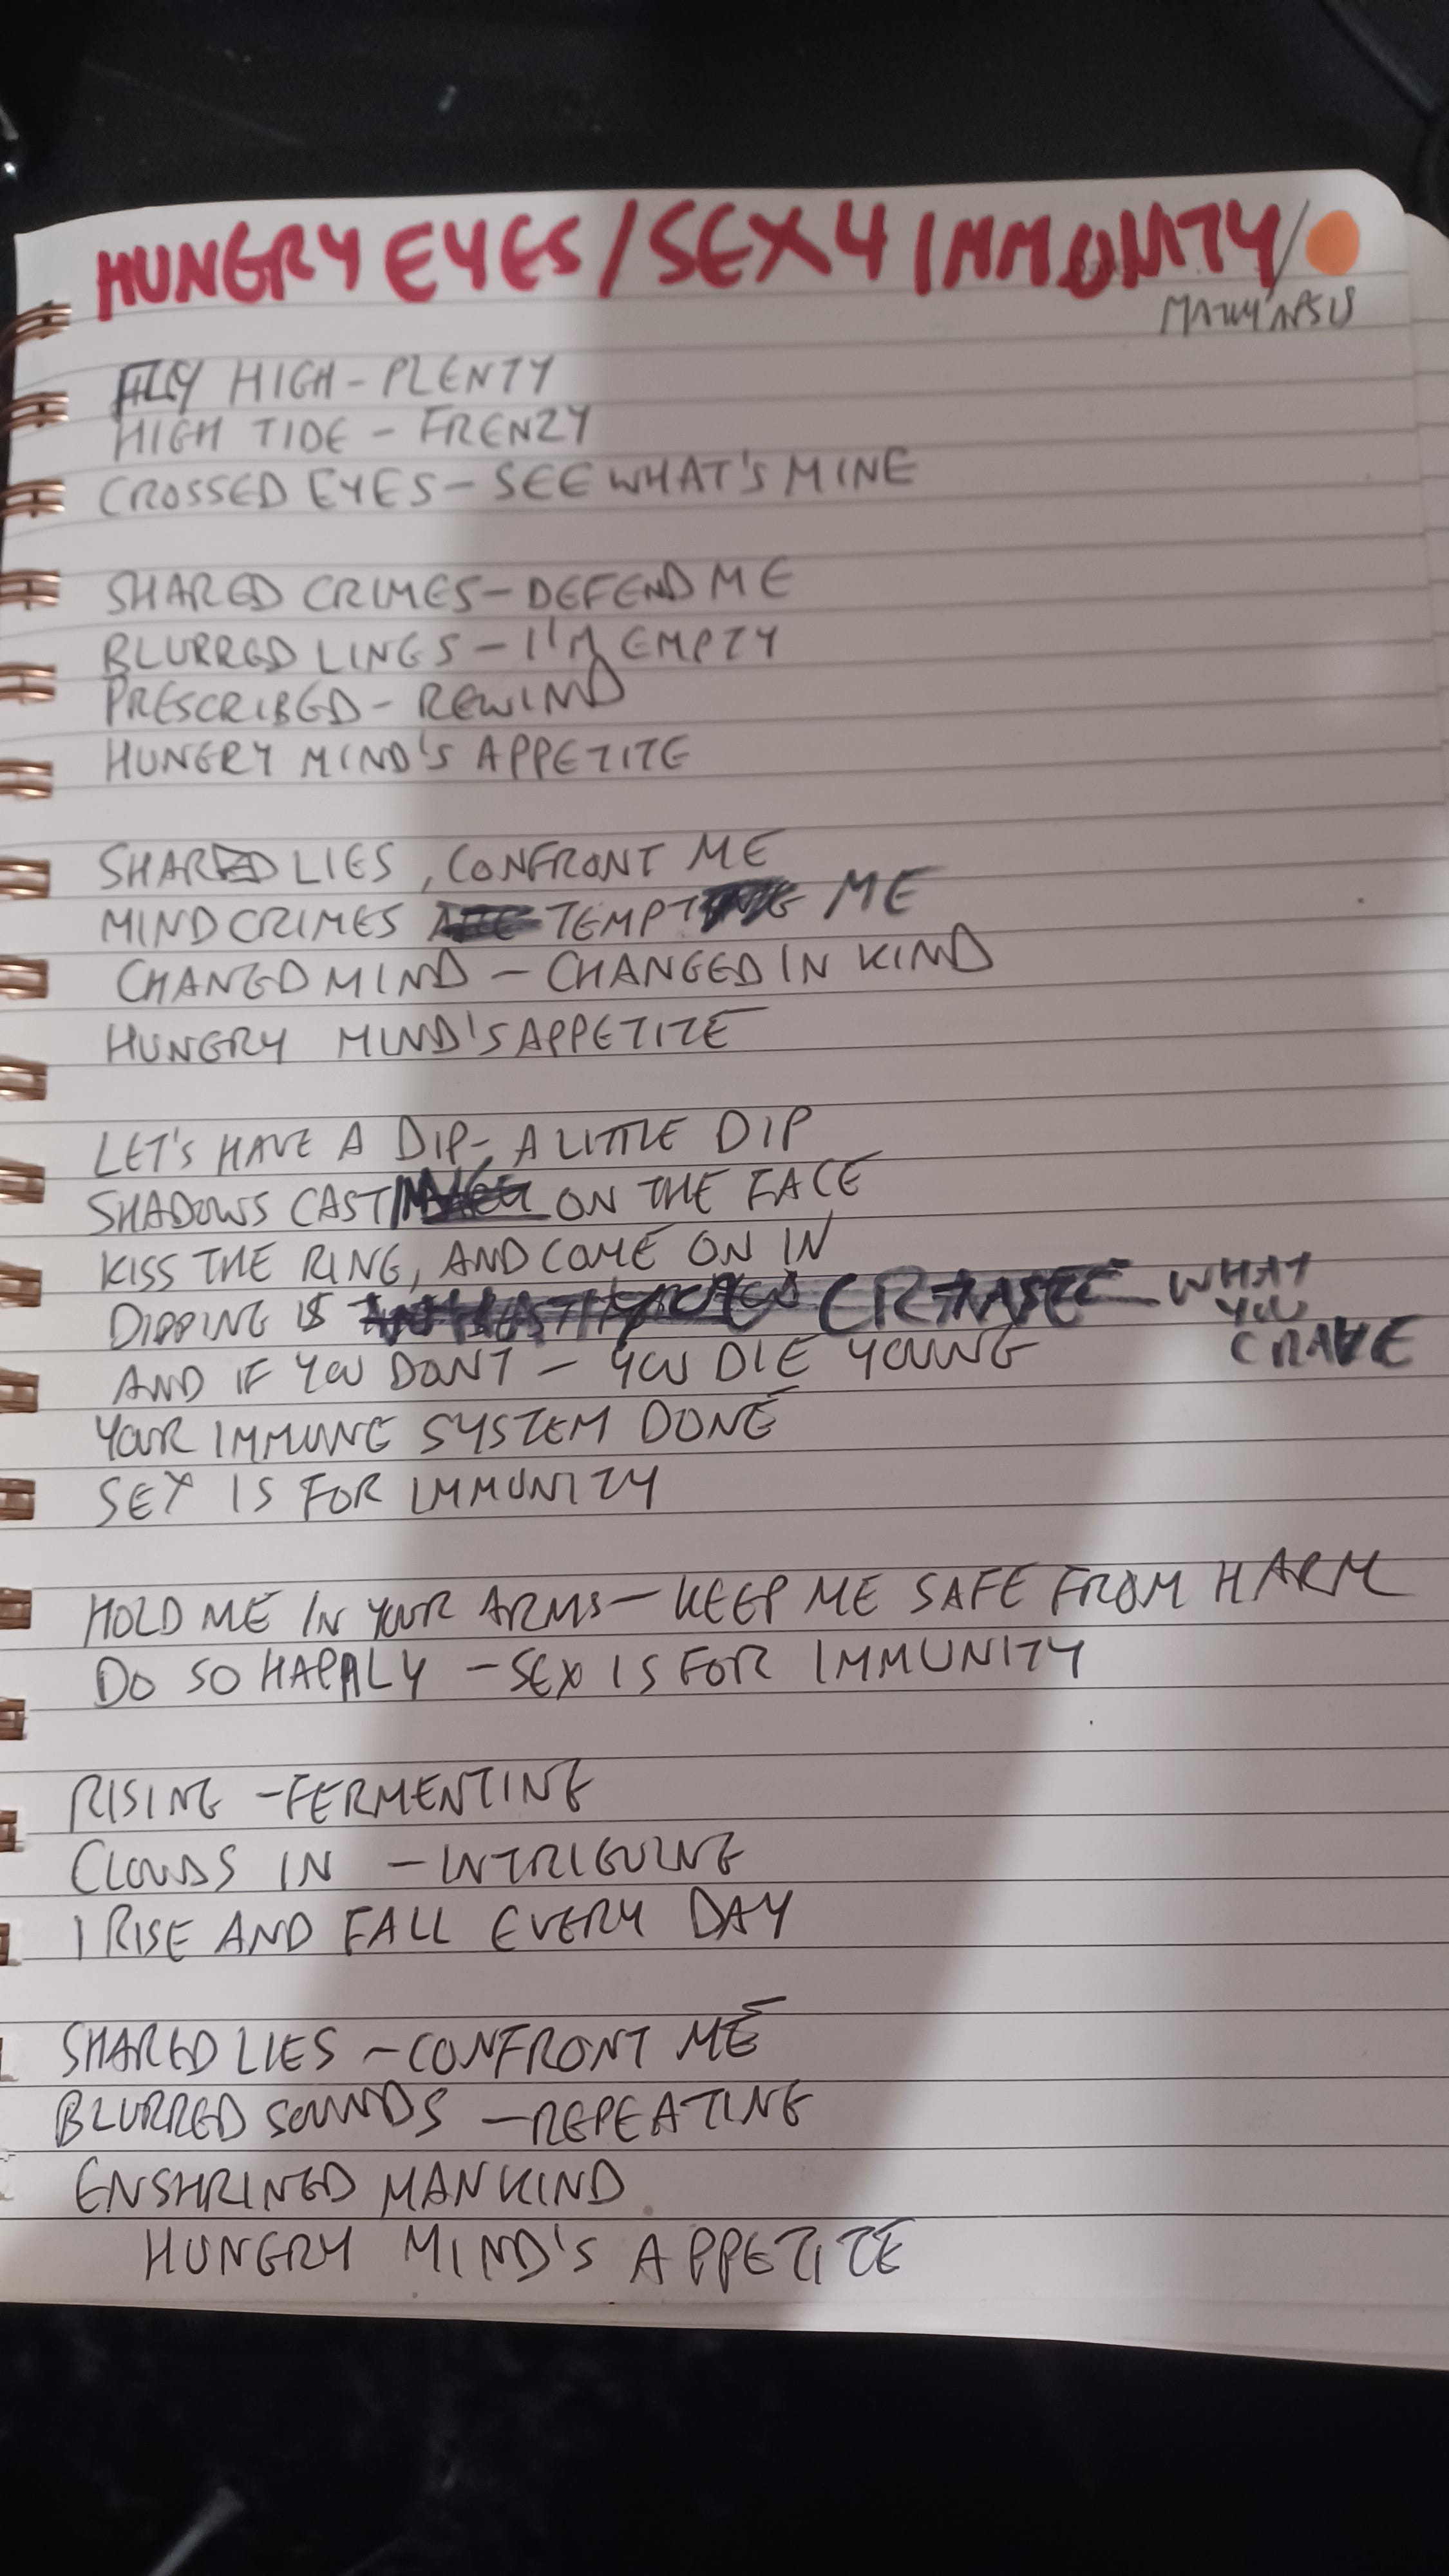 HUNGRY EYES / SEX 4 IMMUNITY /
FLY HIGH - PLENTY
HIGH TIDE - FRENZY
CROSSED EYES - SEE WHAT'S MINE
SHARED CRIMES - DEFEND ME
BLURRED LINES - I'M EMPTY
PRESCRIBED - REWIND
HUNGRY MIND'S APPETITE
SHARED LIES, CONFRONT ME
MIND CRIMES TEMPT ME
CHANGED MIND - CHANGED IN KIND
HUNGRY MIND'S APPETITE
LET'S HAVE A DIP - A LITTLE DIP
SHADOWS CAST ON THE FACE
KISS THE RING, AND COME ON IN
DIPPING IS WHAT YOU CRAVE
AND IF YOU DON'T - YOU DIE YOUNG
YOUR IMMUNE SYSTEM DONE
SEX IS FOR IMMUNITY
HOLD ME IN YOUR ARMS - KEEP ME SAFE FROM HARM
DO SO HAPPILY - SEX IS FOR IMMUNITY
RISING - FERMENTING
CLOUDS IN - INTRIGUING
I RISE AND FALL EVERY DAY
SHARED LIES - CONFRONT ME
BLURRED SOUNDS - REPEATING
ENSHRINED MANKIND
HUNGRY MIND'S APPETITE